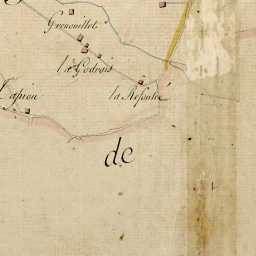 Grenouillet
la Godrais
la Refoulée
Lapion
de